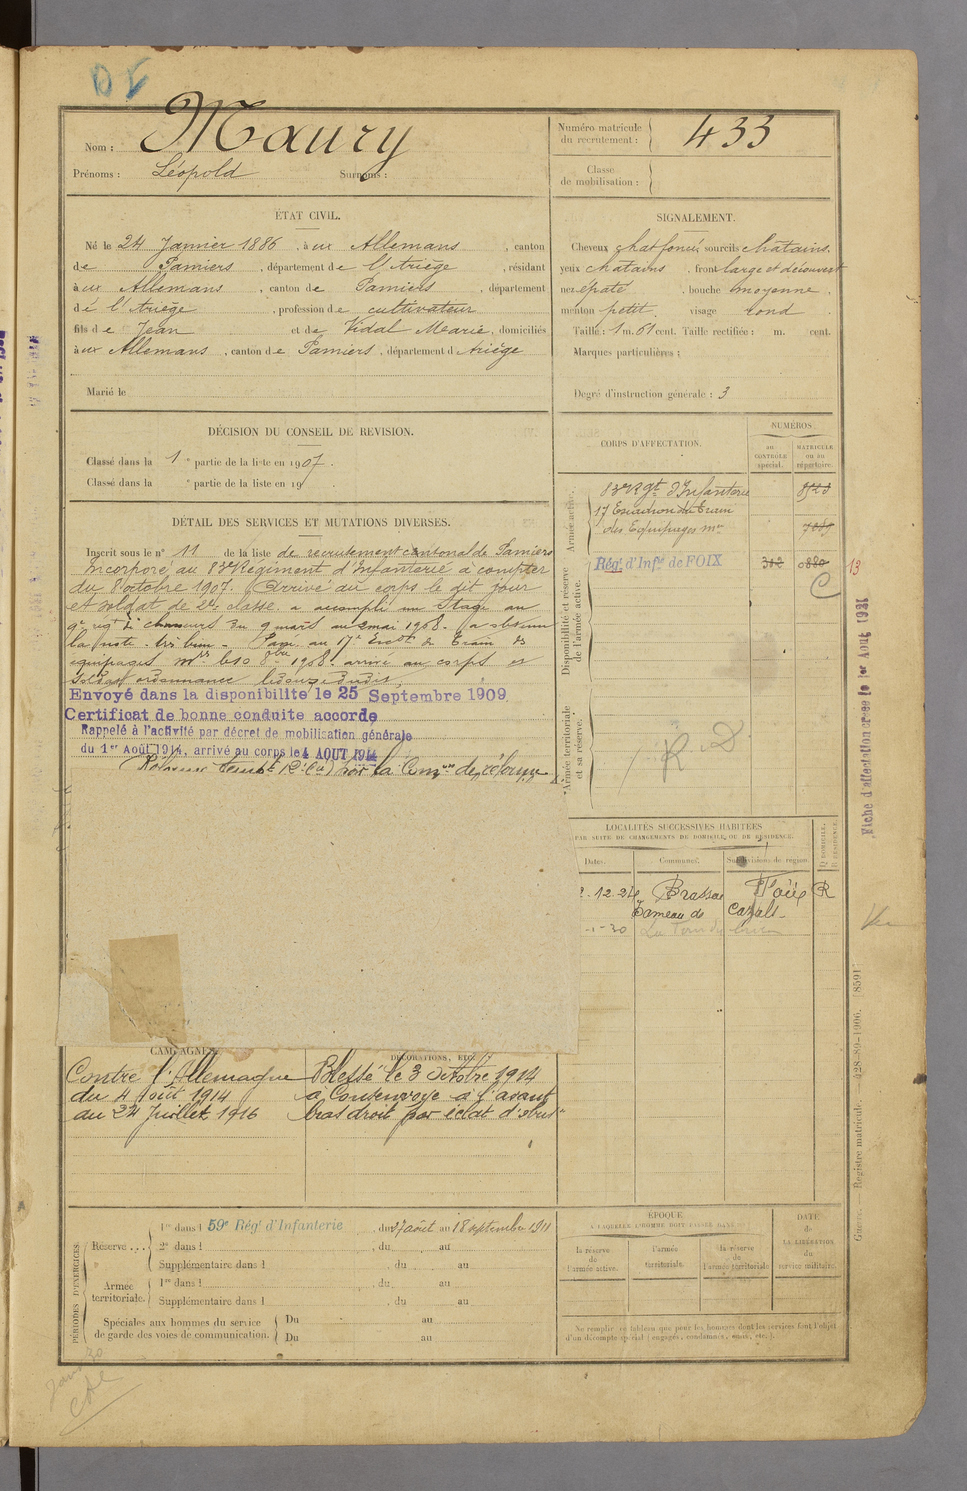 Nom : Maury
Prénoms : Léopold Surnoms :
Numéro matricule
du recrutement : 433
Classe
de mobilisation :
ÉTAT CIVIL.
Né le 24 Janvier 1886, à ux Allemans, canton
de Pamiers, département de l'Ariège, résidant
à ux Allemans, canton de Pamiers, département
dé l'Ariège, profession de cultivateur
fils de Jean et de Vidal Marie, domiciliés
à ux Allemans, canton de Pamiers, département d Ariège
Marié le
SIGNALEMENT.
Cheveux chat foncé, sourcils chatains.
yeux chatains, front large et découvert
nez épaté, bouche moyenne,
menton petit, visage rond
Taille : 1 m. 61 cent. Taille rectifiée : m. cent.
Marques particulières :
Degré d'instruction générale : 3
DÉCISION DU CONSEIL DE REVISION.
Classé dans la 1e partie de la liste en 1907.
Classé dans la e partie de la liste en 19
DÉTAIL DES SERVICES ET MUTATIONS DIVERSES.
Inscrit sous le n° 11 de la liste de recrutement cantonal de Pamiers
Incorporé au 83e Régiment d'Infanterie à compter
du 8 octobre 1907. Arrivé au corps le dit jour
et soldat de 2e classe. a accompli un stage au
9e rgt de chasseurs du 9 mars au 2 mai 1908. a obtenu
la note très bien. Passé au 17e Escon du Train des
équipages mres le 10 8bre 1908. arrivé au corps et
soldat ordonnance
Envoyé dans la disponibilité le 25 Septembre 1909.
Certificat de bonne conduite accordé
Rappelé à l'activité par décret de mobilisation générale
du 1er Août 1914, arrivé au corps le 4 AOUT 1914
par la Comon de réforme
CORPS D'AFFECTATION.
NUMÉROS
au
CONTRÔLE
spécial.
MATRICULE
ou au
répertoire.
Armée active.
83e Rgt d'Infanterie
17 Escadron du Train
des Equipages mres
Disponibilité et réserve
de l'armée active.
Régt d'Infie de FOIX 312 0880 13
C
Armée territoriale
et sa réserve.
R. D
Fiche d'affectation créée le 1er Aout 1931
LOCALITÉS SUCCESSIVES HABITÉES
PAR SUITE DE CHANGEMENTS DE DOMICILE OU DE RÉSIDENCE.
Dates.
Communes.
Subdivisions de région.
D. DOMICILE.
R. RÉSIDENCE.
12.24 Brassac Foix R
hameau de Cazals
30
CAMPAGNES.
Contre l'Allemagne
du 4 Août 1914
au 24 Juillet 1916
DÉCORATIONS, ETC.
Blessé le 3 Octobre 1914
à Consenvoye à l'avant
bras droit par éclat d'obus
PÉRIODES D'EXERCICES.
Réserve ...
1re dans l 59e Régt d'Infanterie, du 27 août au 18 septembre 1911
2e dans l , du au
Supplémentaire dans l , du au
Armée
territoriale.
1re dans l , du au
Supplémentaire dans l , du au
Spéciales aux hommes du service
de garde des voies de communication.
Du au
Du au
ÉPOQUE
À LAQUELLE L'HOMME DOIT PASSER DANS
la réserve
de
l'armée active.
l'armée
territoriale.
la réserve
de
l'armée territoriale
DATE
de
LA LIBÉRATION
du
service militaire.
Ne remplir ce tableau que pour les hommes dont les services font l'objet
d'un décompte spécial (engagés, condamnés, omis, etc.).
Guerre. Registre matricule. 428-89-1906. [8591]